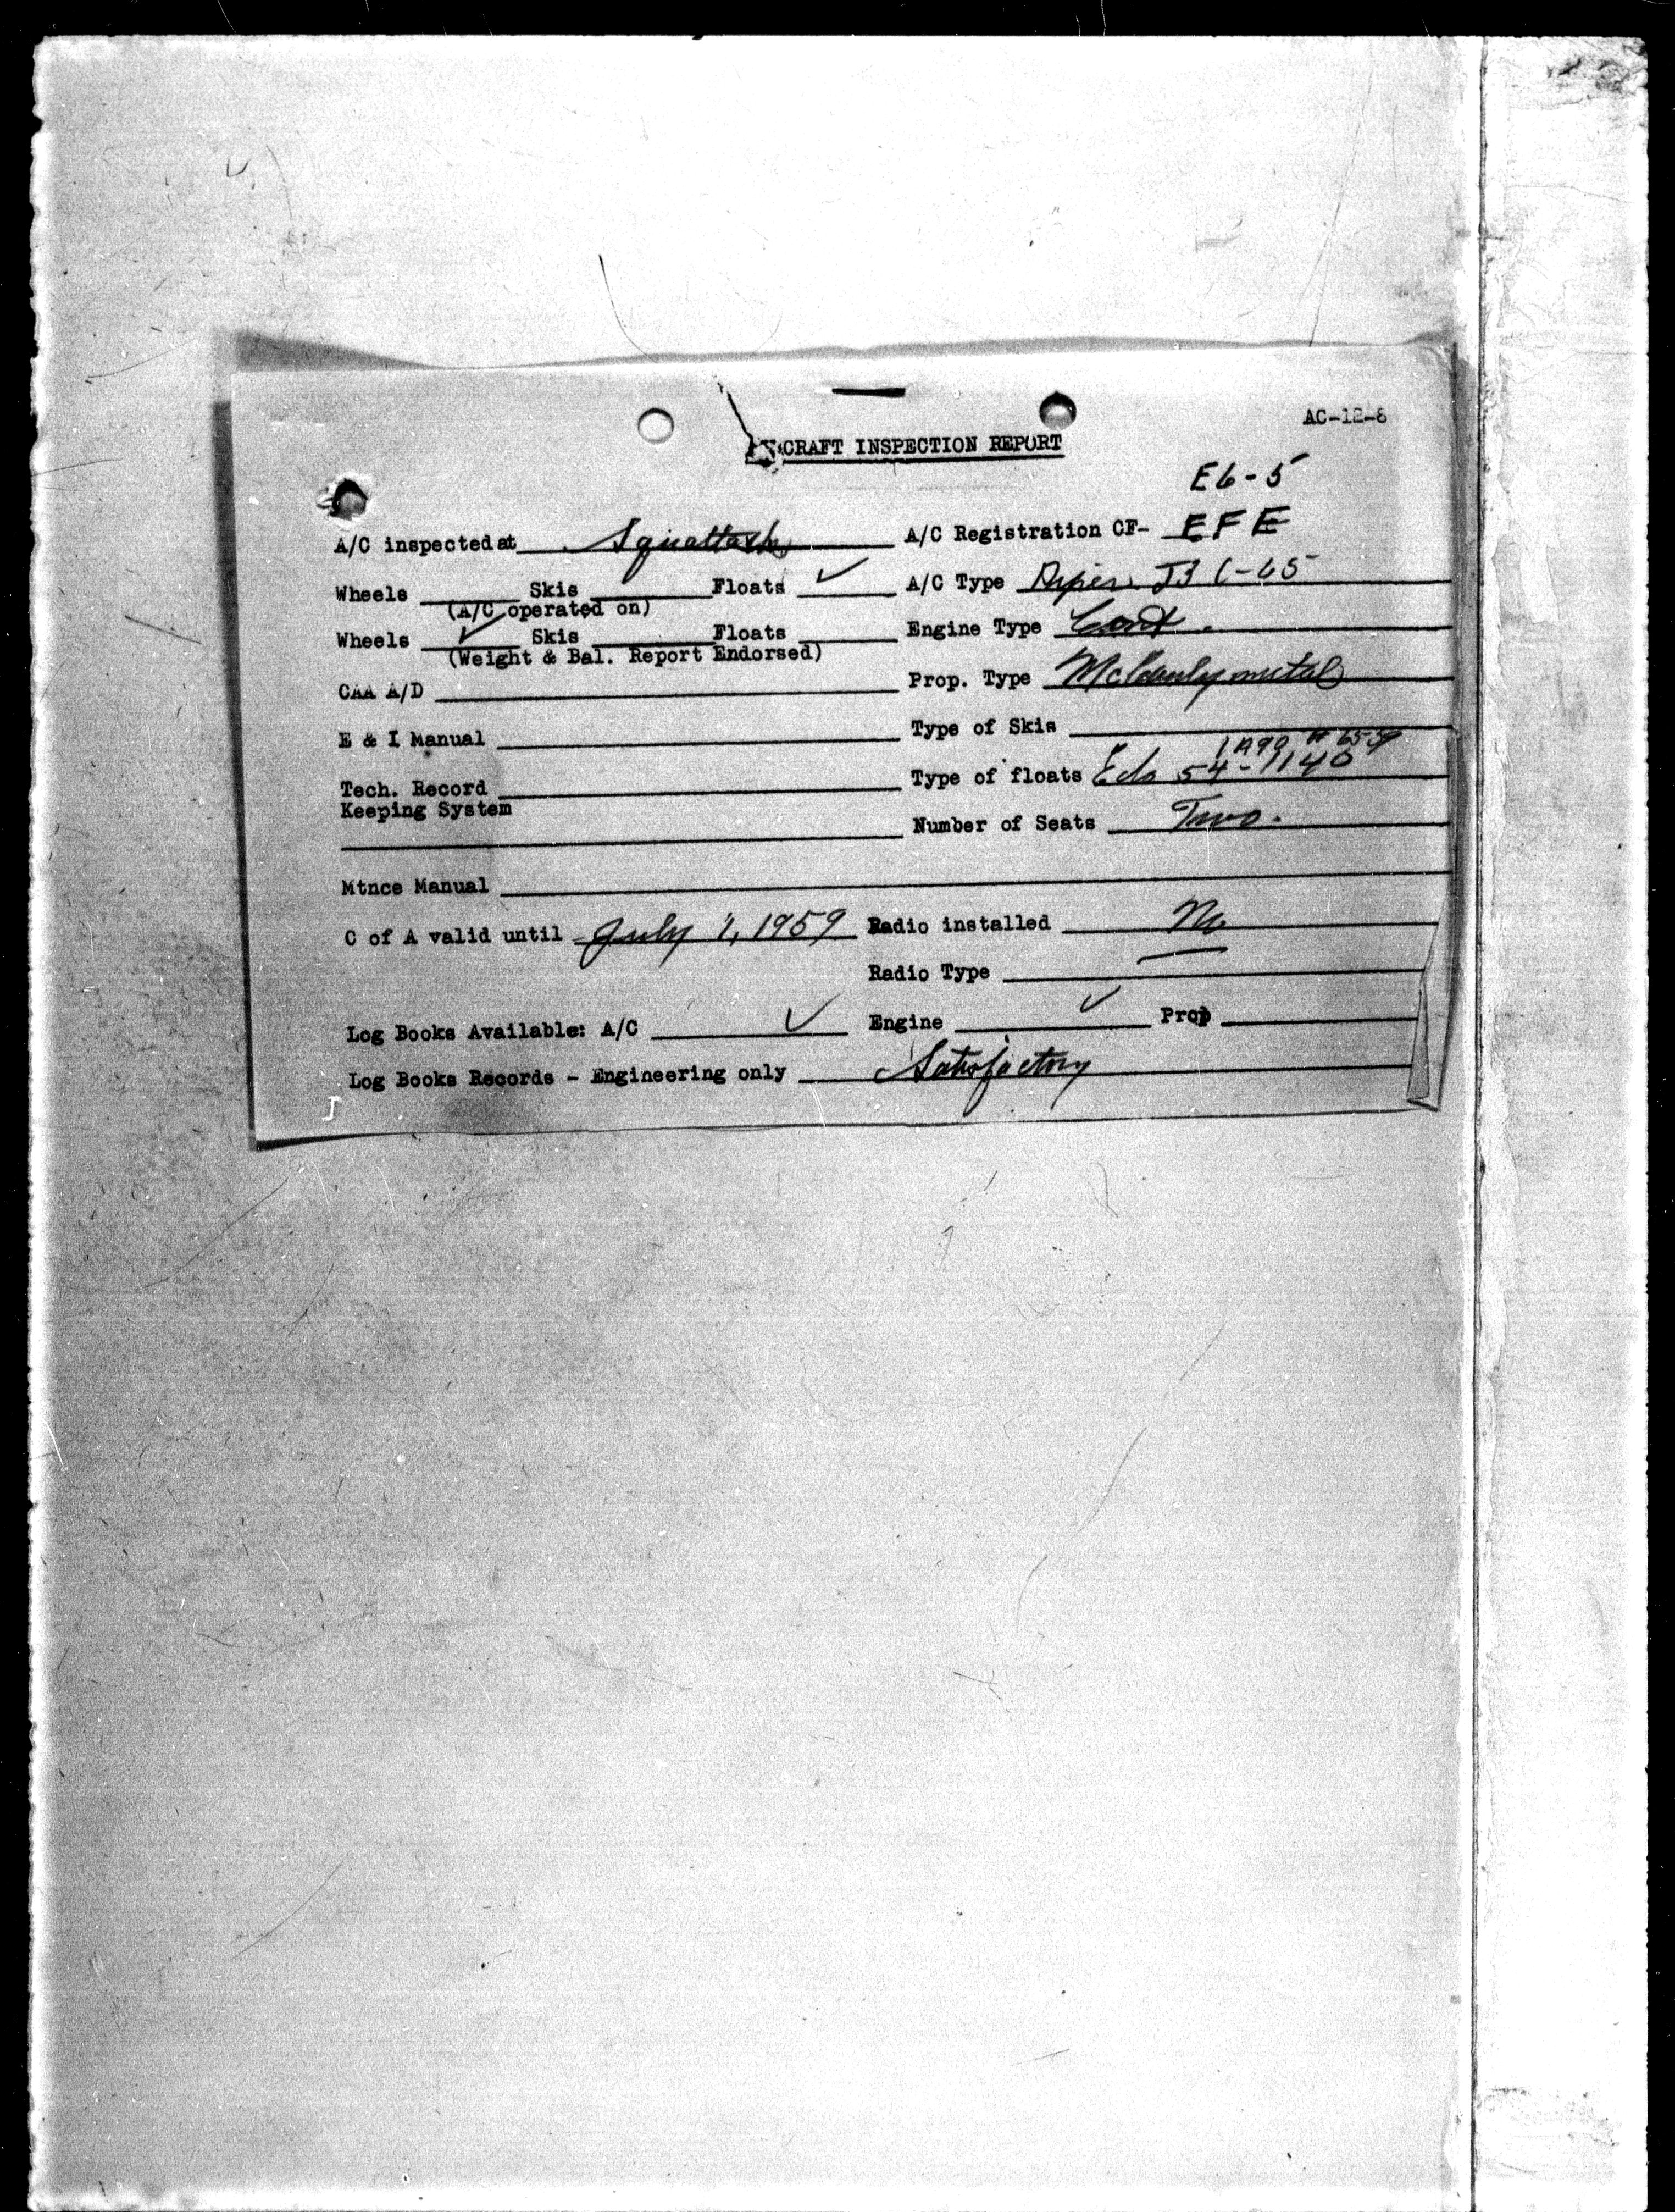 AC-12-8
CRAFT INSPECTION REPORT
E6-5
A/C inspected at A/C Registration CF- EFE
Wheels Skis Floats ✓ A/C Type Piper J3 C-65
(A/C operated on)
Wheels ✓ Skis Floats Engine Type Cont.
(Weight & Bal. Report Endorsed)
CAA A/D Prop. Type McCauley metal
E & I Manual Type of Skis
Tech. Record Type of floats Edo 54-1140
Keeping System
Number of Seats Two.
Mtnce Manual
C of A valid until July 1, 1959 Radio installed No
Radio Type —
Log Books Available: A/C ✓ Engine ✓ Prop
Log Books Records - Engineering only Satisfactory